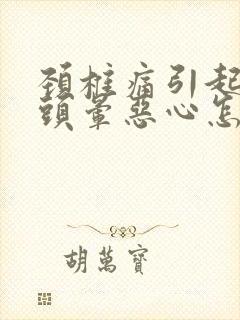 頚椎痛引起
頭暈惡心怎
胡萬寶